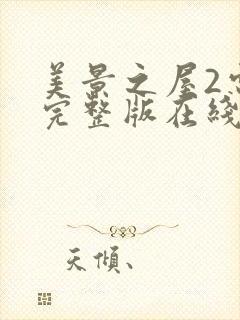 美景之屋2
完整版在綫
天傾、